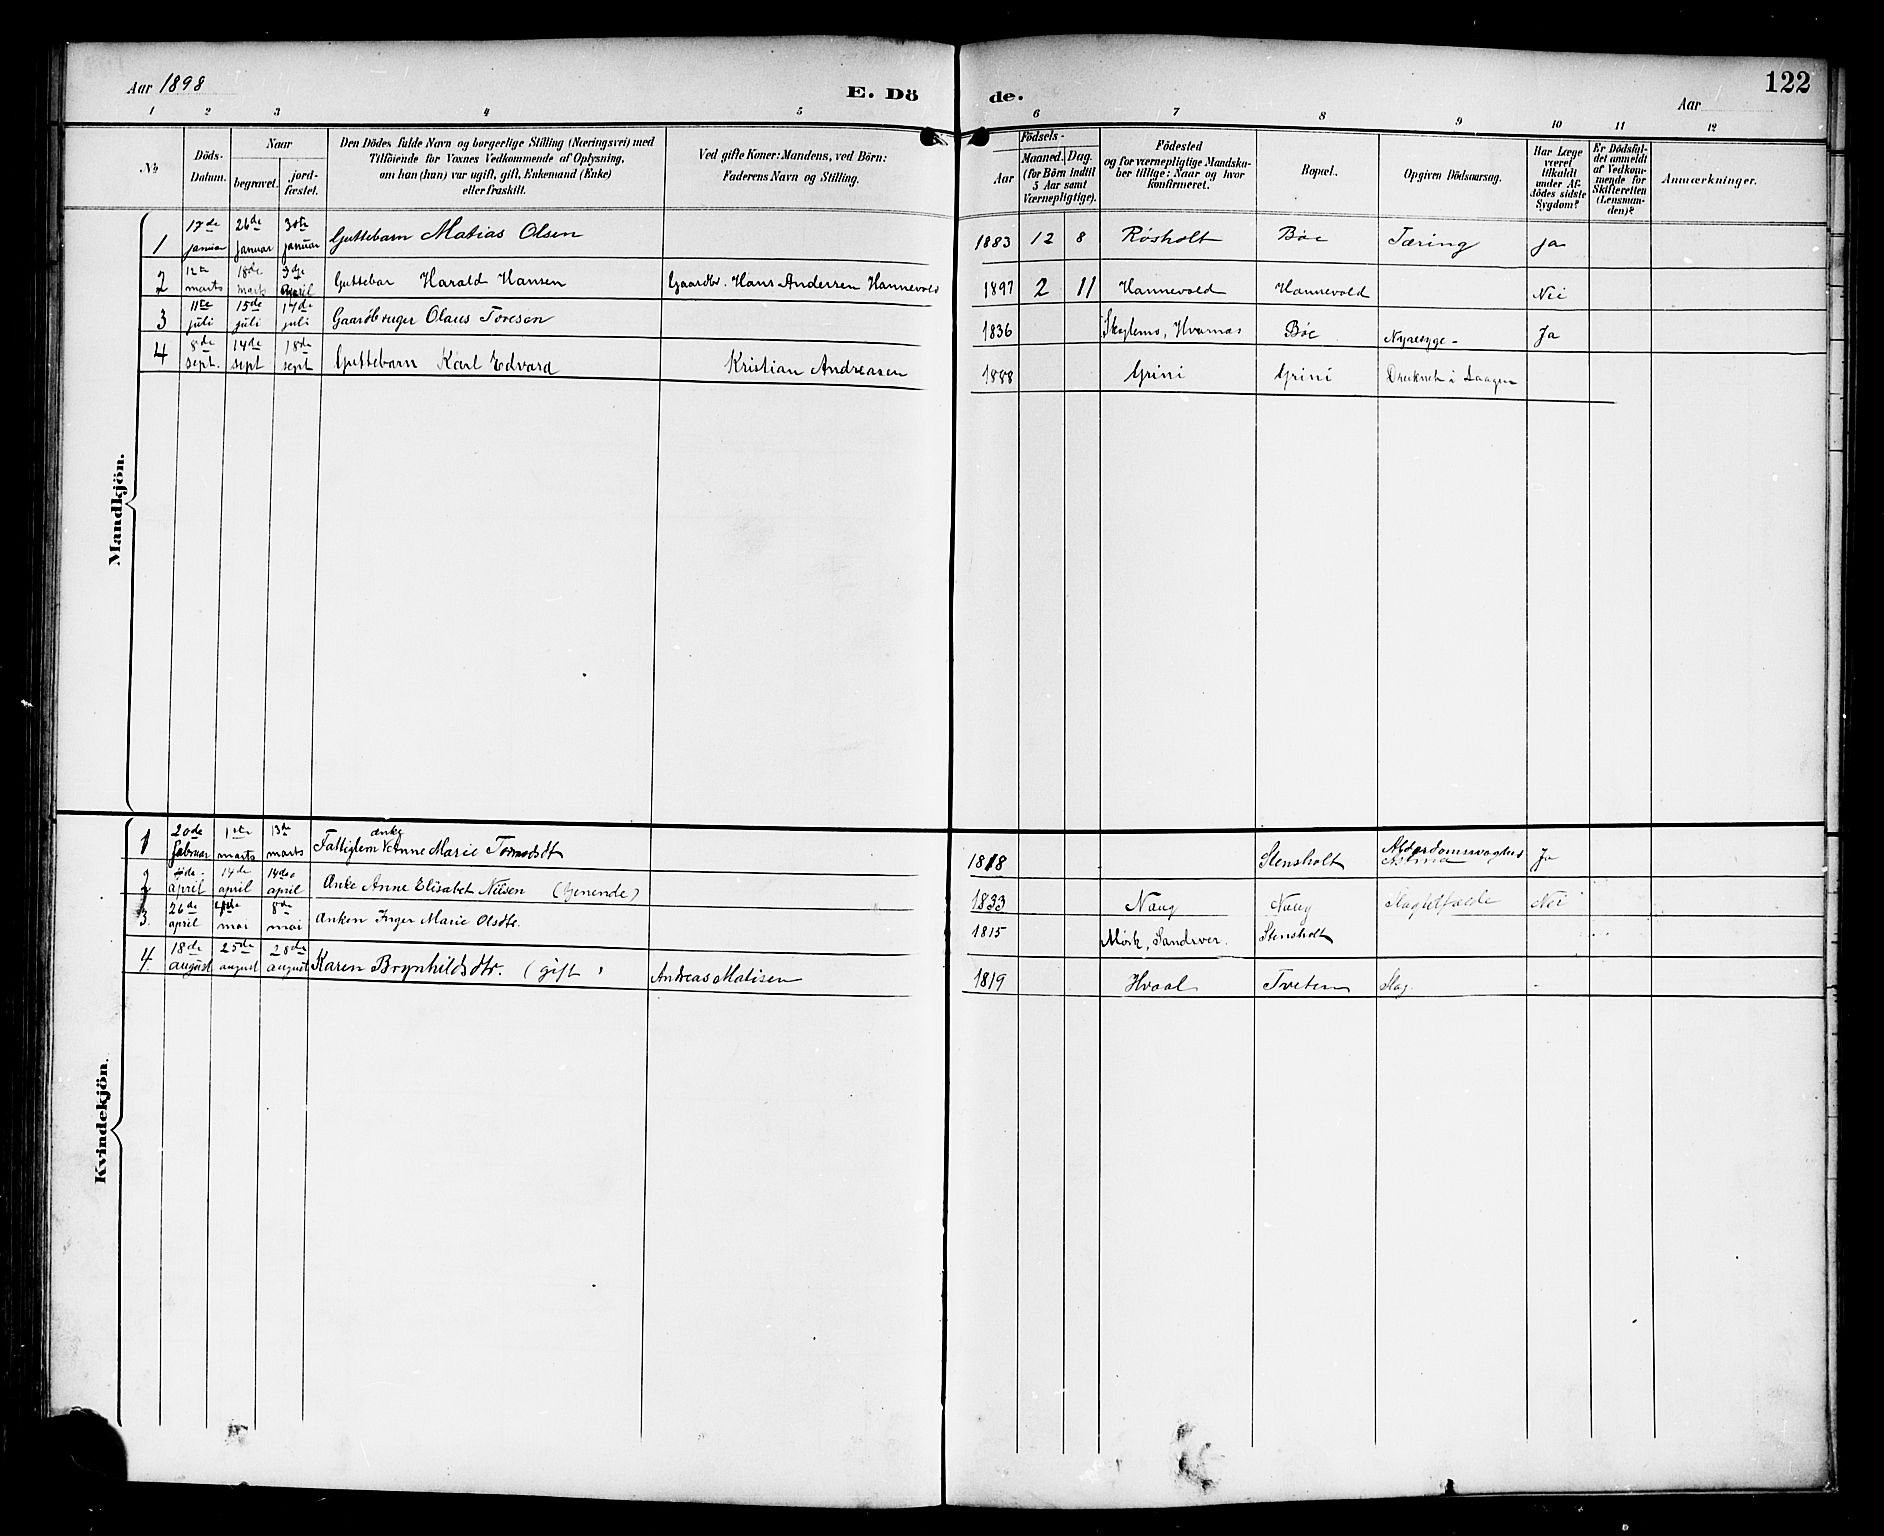 Aar 1898
E. Dö
de.
Aar
122
1 2 3 4 5 6 7 8 9 10 11 12
No
Döds-Datum.
Naar
begravet.
jord-fæstet.
Den Dödes fulde Navn og borgerlige Stilling (Næringsvei) med
Tilföiende for Voxnes Vedkommende af Oplysning,
om han (hun) var ugift, gift, Enkemand (Enke)
eller fraskilt.
Ved gifte Koner: Mandens, ved Börn:
Faderens Navn og Stilling.
Födsels-
Aar
Maaned. Dag.
(for Börn indtil
5 Aar samt
Værnepligtige).
Födested
og for værnepligtige Mandska-
ber tillige: Naar og hvor
konfirmeret.
Bopæl.
Opgiven Dödsaarsag.
Har Læge
været
tilkaldt
under Af-
dödes sidste
Sygdom?
Er Dödsfal-
det anmeldt
af Vedkom-
mende for
Skifteretten
(Lensman-
den)?
Anmærkninger.
Mandkjön.
1 17de januar 26de januar 30te januar Guttebarn Matias Olsen 1883 12 8 Røsholt Bøe Tæring Ja
2 12te marts 18de marts 3die april Guttebar Harald Hansen Gaardbr. Hans Andersen Hannevold 1897 2 11 Hannevold Hannevold Nei
3 11te juli 15de juli 17de juli Gaardbruger Olaus Toresen 1836 Hvarnas Bøe Nyresyge - Ja
4 8de sept. 14de sept 18de sept Guttebarn Karl Edvard Kristian Andreasen 1888 Grini Grini Druknet i Laagen
Kvindekjön.
1 20de februar 1ste marts 13de marts Fattiglem Anne Marie enke 1818 Stensholt Alderdomssvaghed Astma Ja
2 april 14de april 14de april Enke Anne Elisabet Nilsen (Gjenende) 1833 Naug Naug Slagtilfælde Nei
3. 26de april mai 8de mai Enken Inger Marie Olsdtr. 1815 Mørk, Sandsver. Stensholt
4. 18de august 25de august 28de august Karen Brynhildsdtr. (gift) Andreas Matisen 1819 Hvaal Tveten Slag. -